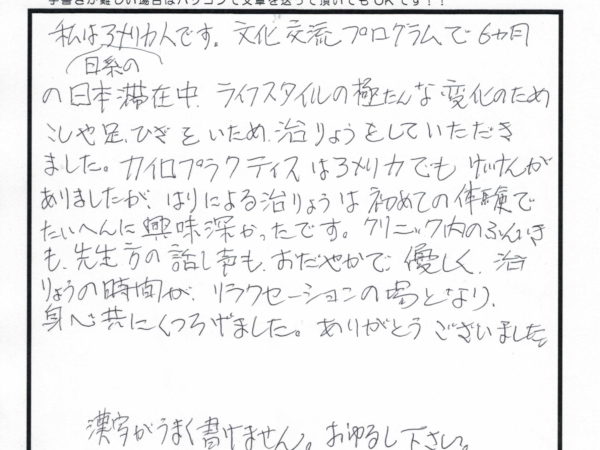 手書きが難しい場合はパソコンで文章を送って頂いてもOKです!!
私はアメリカ人です。文化交流プログラムで6ヵ月
日系の
の日本滞在中、ライフスタイルの極たんな変化のため
こしや足、ひざをいため、治りょうをしていただき
ました。カイロプラクティスはアメリカでもけいけんが
ありましたが、はりによる治りょうは初めての体験で
たいへんに興味深かったです。クリニック内のふんいき
も、先生方の話し声も、おだやかで、優しく、治
りょうの時間が、リラクセーションの場となり、
身心共にくつろげました。ありがとうございました。
漢字がうまく書けません。おゆるし下さい。